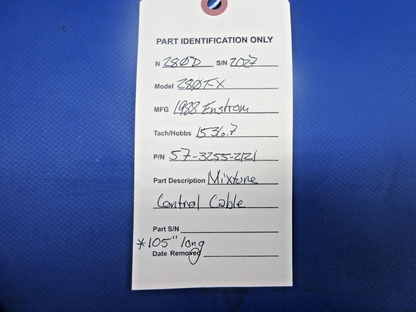 PART IDENTIFICATION ONLY
N 280D S/N 2027
Model 280FX
MFG 1988 Enstrom
Tach/Hobbs 1536.7
P/N 57-3255-2121
Part Description Mixture
Control Cable
Part S/N
*105" long
Date Removed